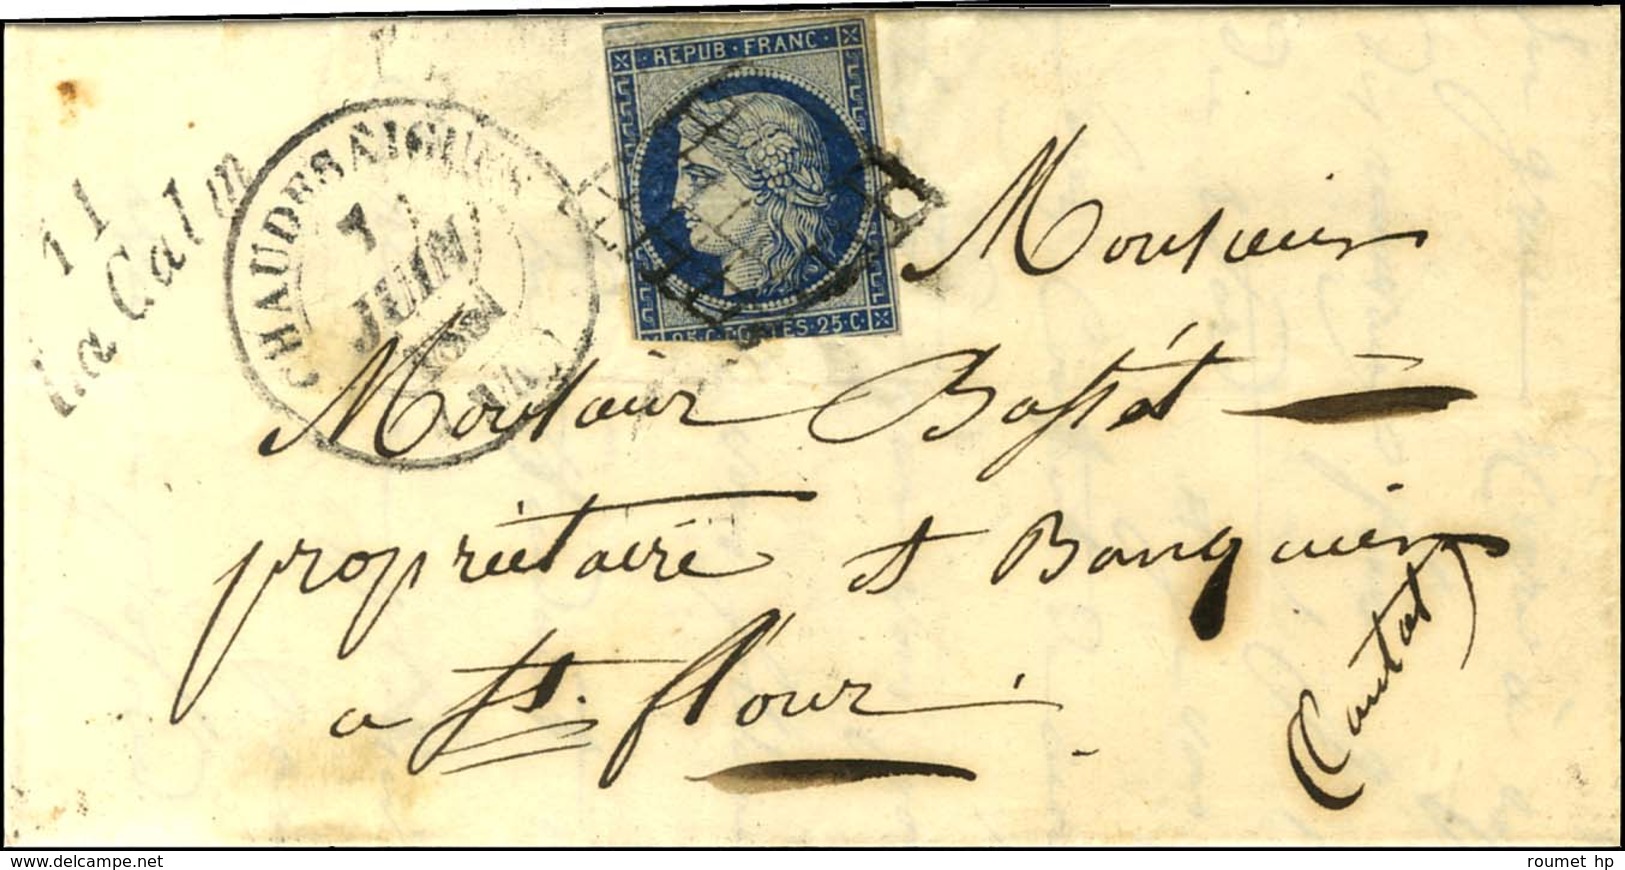 REPUB·FRANC·
25·C·POSTES·25·C·
11
La Calm
CHAUDESAIGUES
7
JUIN
Monsieur
Monsieur Bassét
propriétaire et Banquier
a St. flour
(Cantal)
www.delcampe.net
roumet hp